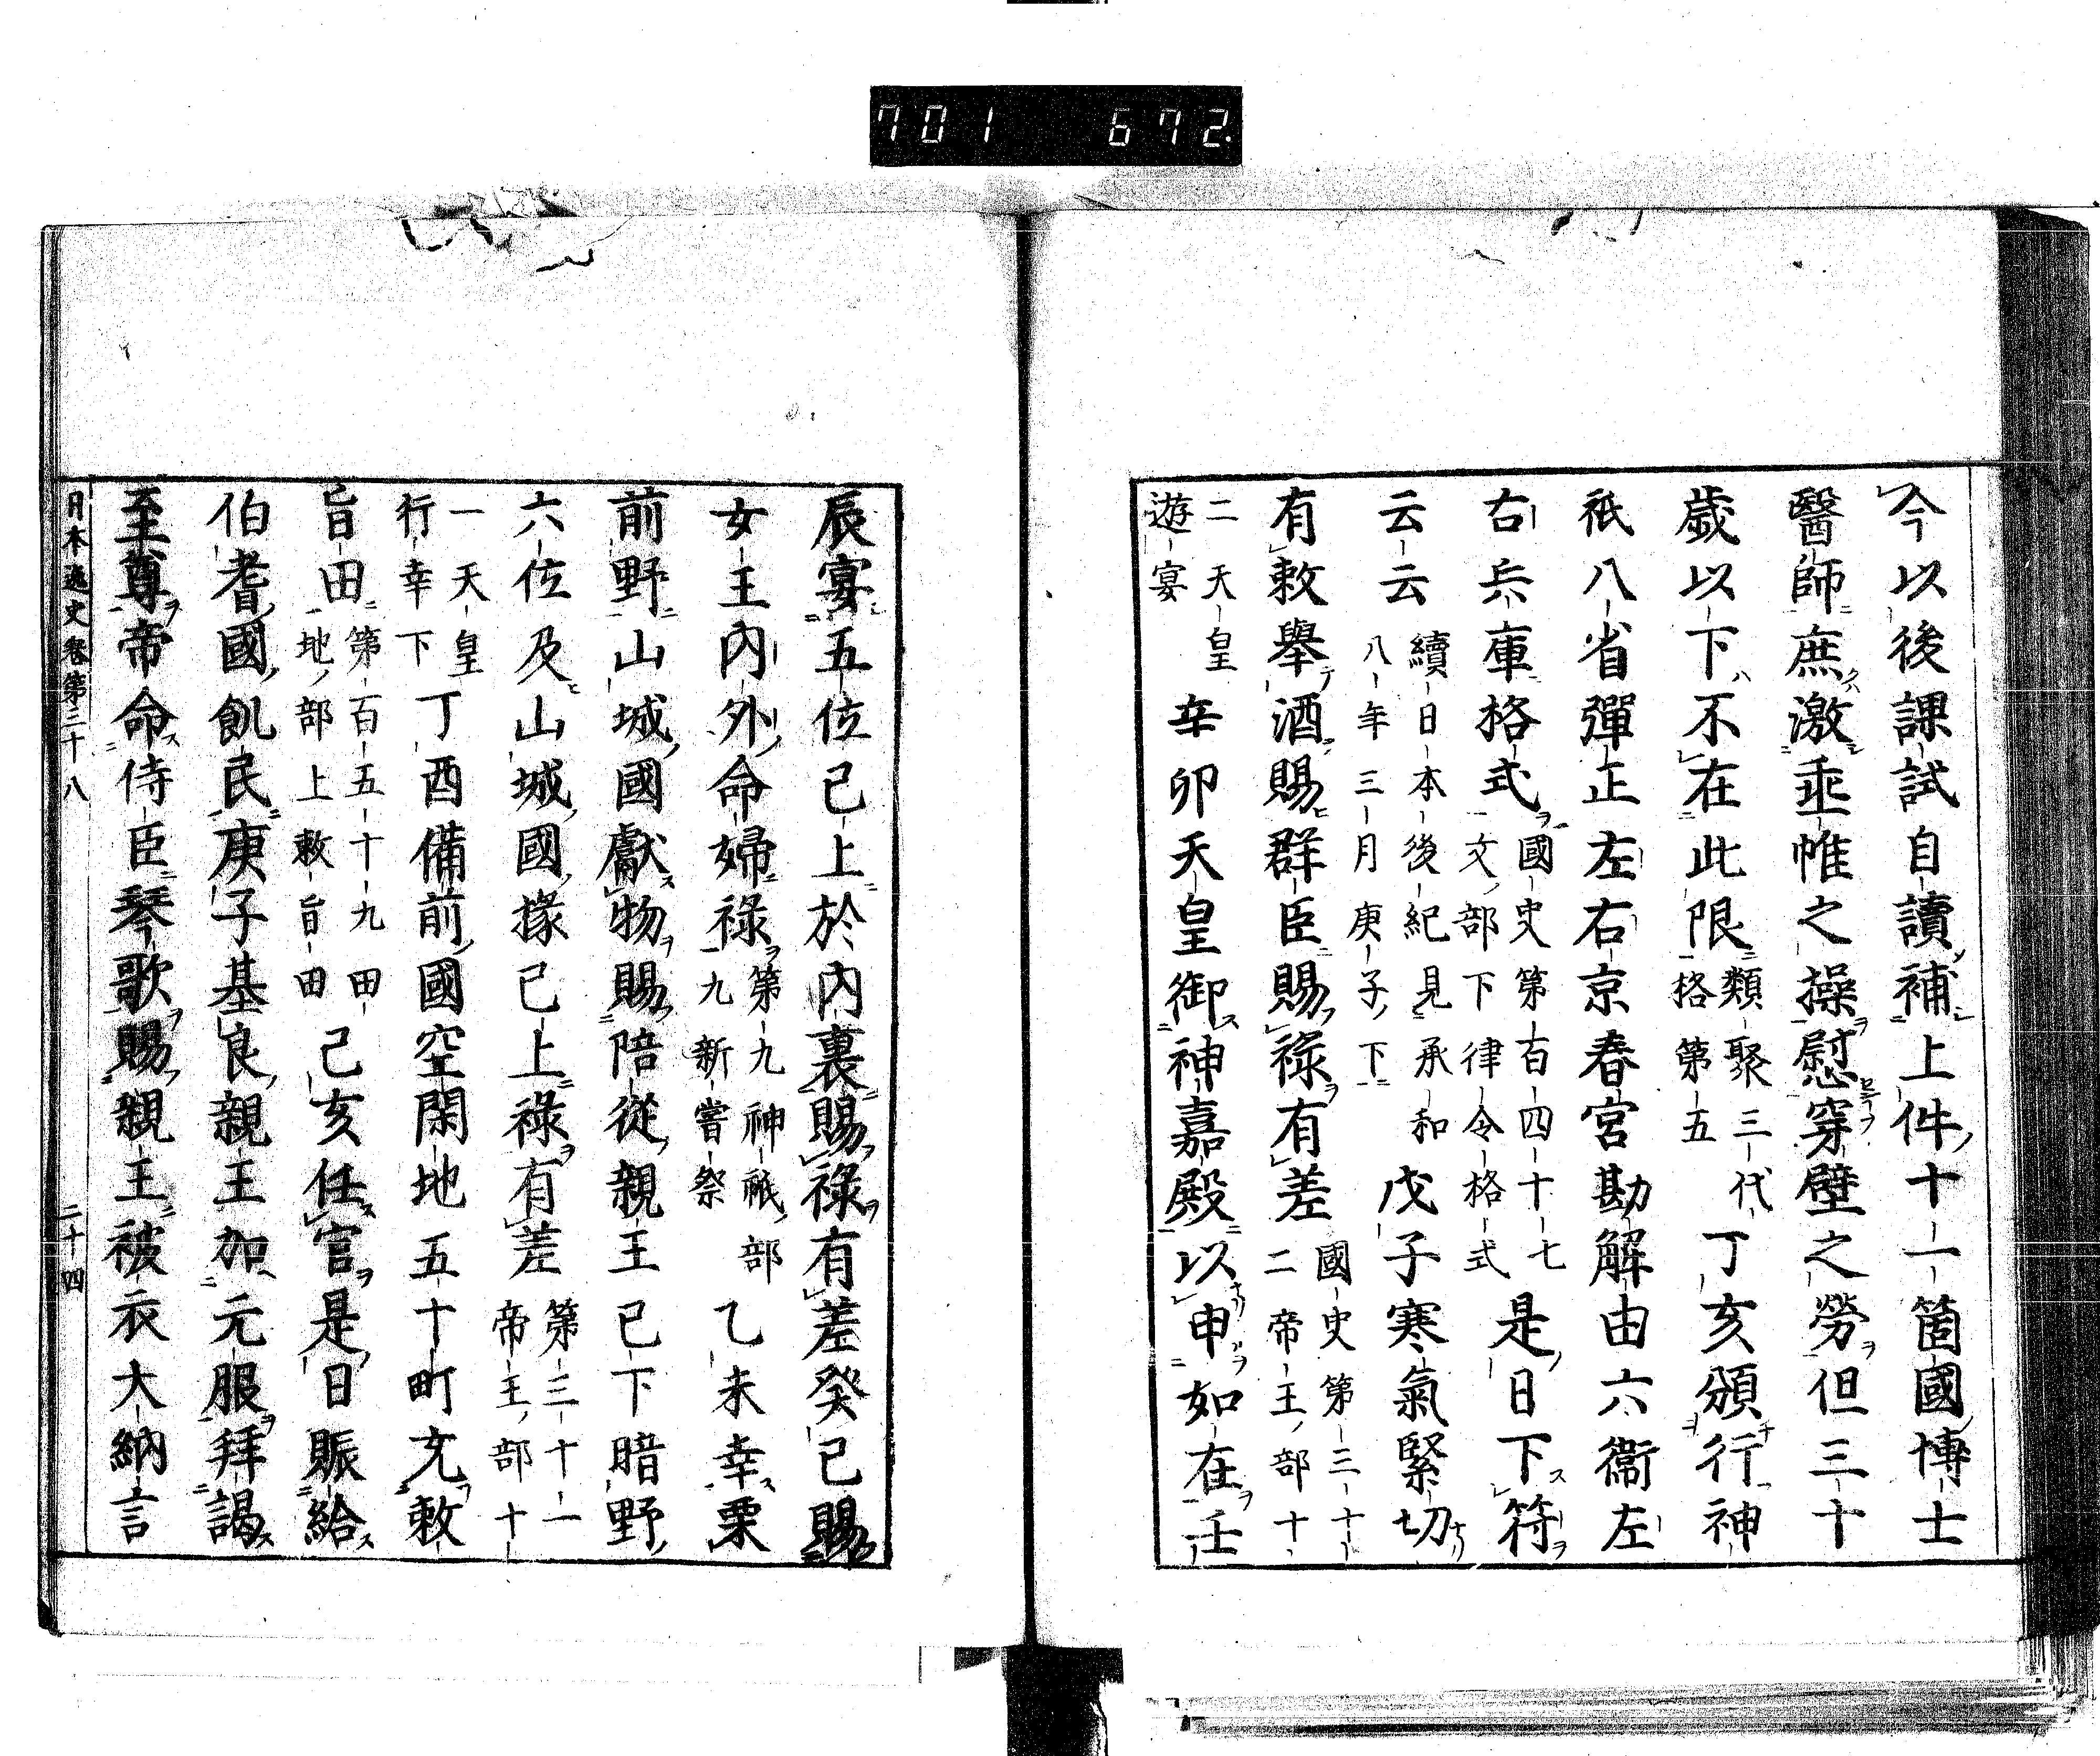 701 672.
今以後課試自讀補上件十一箇國博士
醫師庶激垂帷之操慰穿壁之勞但三十
歲以下不在此限類聚三代格第五丁亥頒行神
祇八省彈正左右京春宮勘解由六衞左
右兵庫格式國史第百四十七文部下律令格式是日下符
云云續日本後紀見承和八年三月庚子下戊子寒氣緊切
有敕舉酒賜群臣賜祿有差國史第三十二帝王部十
二天皇遊宴辛卯天皇御神嘉殿以申如在壬
辰宴五位已上於內裏賜祿有差癸已賜
女王內外命婦祿第九神祇部九新嘗祭乙未幸栗
前野山城國獻物賜陪從親王已下暗野
六位及山城國掾已上祿有差第三十一帝王部十
一天皇行幸下丁酉備前國空閑地五十町充敕
旨田第百五十九田地部上敕旨田己亥任官是日賑給
伯耆國飢民庚子基良親王加元服拜謁
至尊帝命侍臣琴歌賜親王被衣大納言
日本逸史卷第三十八 二十四